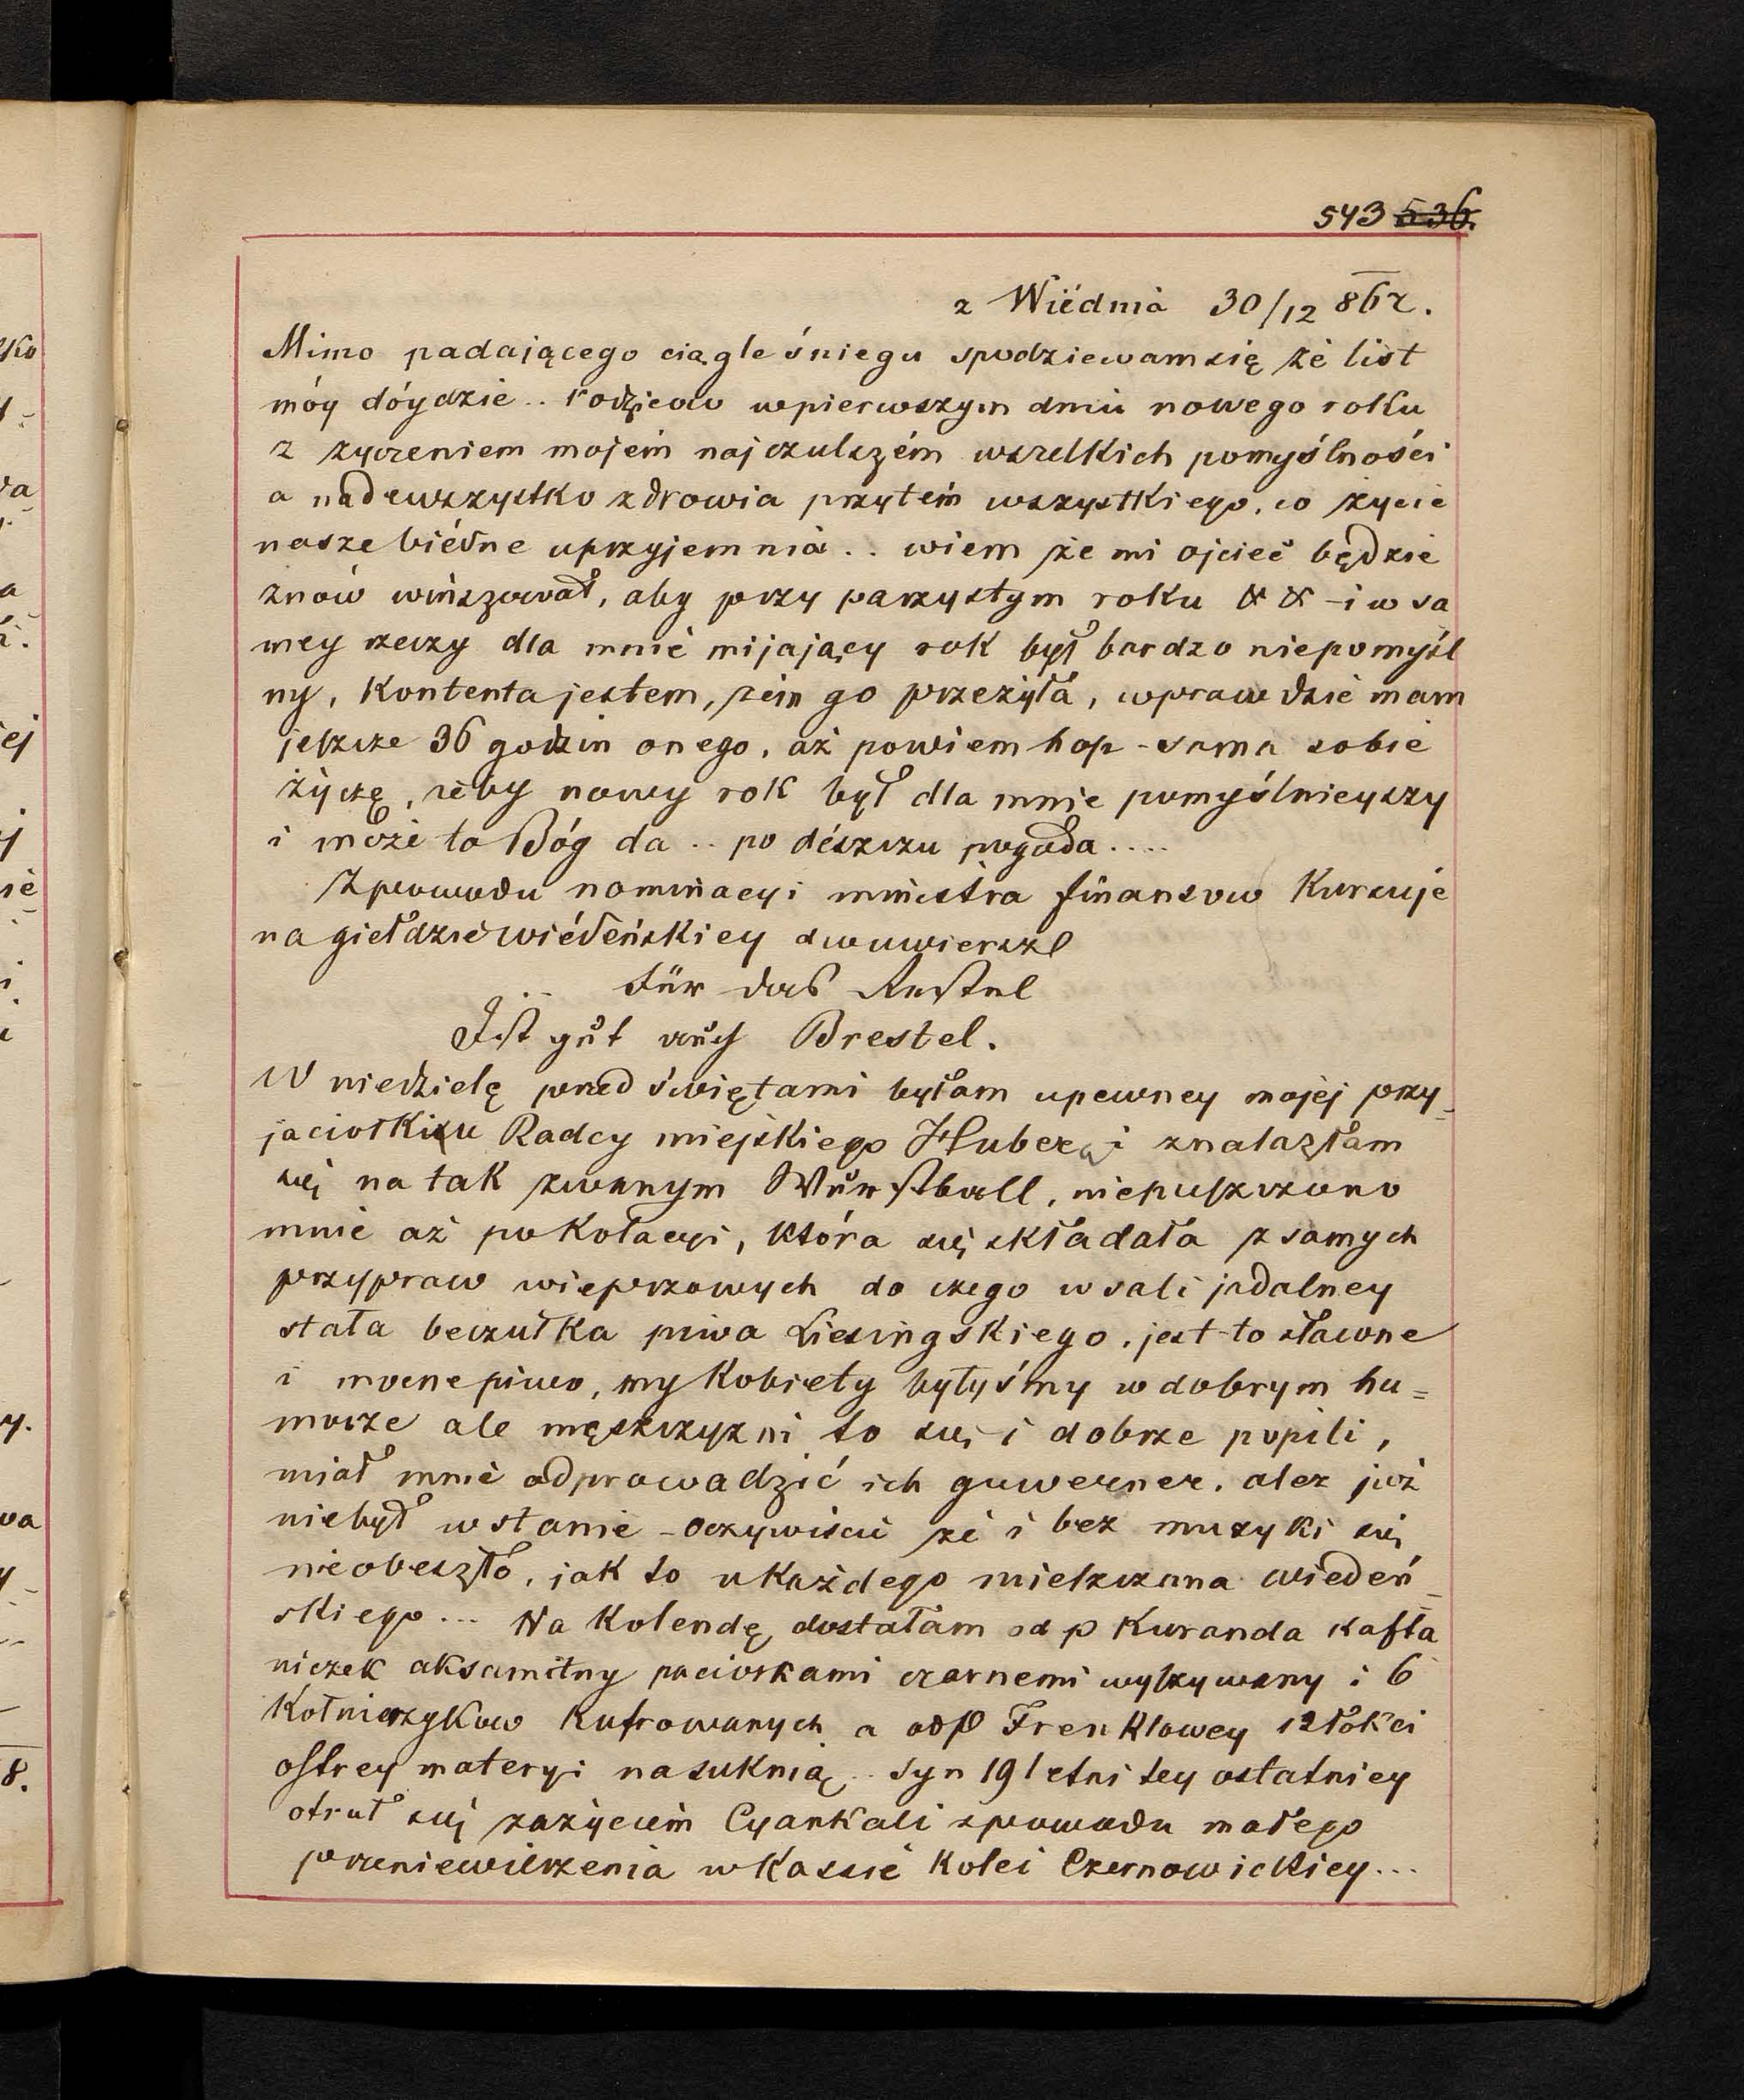 543 536.
z Wiédnia 30/12 867.
Mimo padającego ciągle śniegu spodziewam się że list
móy dóydzie .. rodziców wpierwszym dniu nowego roku
z życzeniem mojém najczulszém wszelkich pomyślności
a nadewszystko zdrowia przytém wszystkiego, co życie
nasze biédne uprzyjemnia .. wiem że mi ojciec będzie
znów winszował, aby przy parzystym roku & & - i w sa
mey rzeczy dla mnie mijający rok był bardzo niepomyśl
ny, kontenta jestem, żem go przeżyła, wprawdzie mam
jeszcze 36 godzin onego, aż powiem hop - sama sobie
życzę, żeby nowy rok był dla mnie pomyślnieyszy
i może to Bóg da .. po deszczu pogoda ....
Zpowodu nominacyi ministra finansow kursuje
na giełdzie wiédeńskiey dwuwiersz
Für das Restel
Ist gut auch Brestel.
W niedzielę przed świętami byłam upewney mojej przy_
jaciołki Radcy miejskiego Hubera i znalazłam
się na tak zwanym Wurstball, niepuszczono
mnie aż po kolacyi, która się składała z samych
przypraw wieprzowych do czego w sali jadalney
stała beczułka piwa Liesingskiego, jest to sławne
i mocne piwo, my kobiety byłyśmy w dobrym hu=
morze ale męszczyzni to się i dobrze popili,
miał mnie odprowadzić ich guwerner, ale już
niebył wstanie - oczywiście że i bez muzyki się
nieobeszło, jak to u każdego mieszczana wiedeń_
skiego ... Na kolendę dostałam od p Kuranda kafta
niczek aksamitny paciorkami czarnemi wyszywany i 6
kołnierzykow kufrowanych a od p Frenklowey 12 łokci
ostrey materyi na suknią .. Syn 19 letni tey ostatniey
otruł się zażyciem Cyankali zpowodu małego
przeniewierzenia w kassie kolei Czernowickiey ...